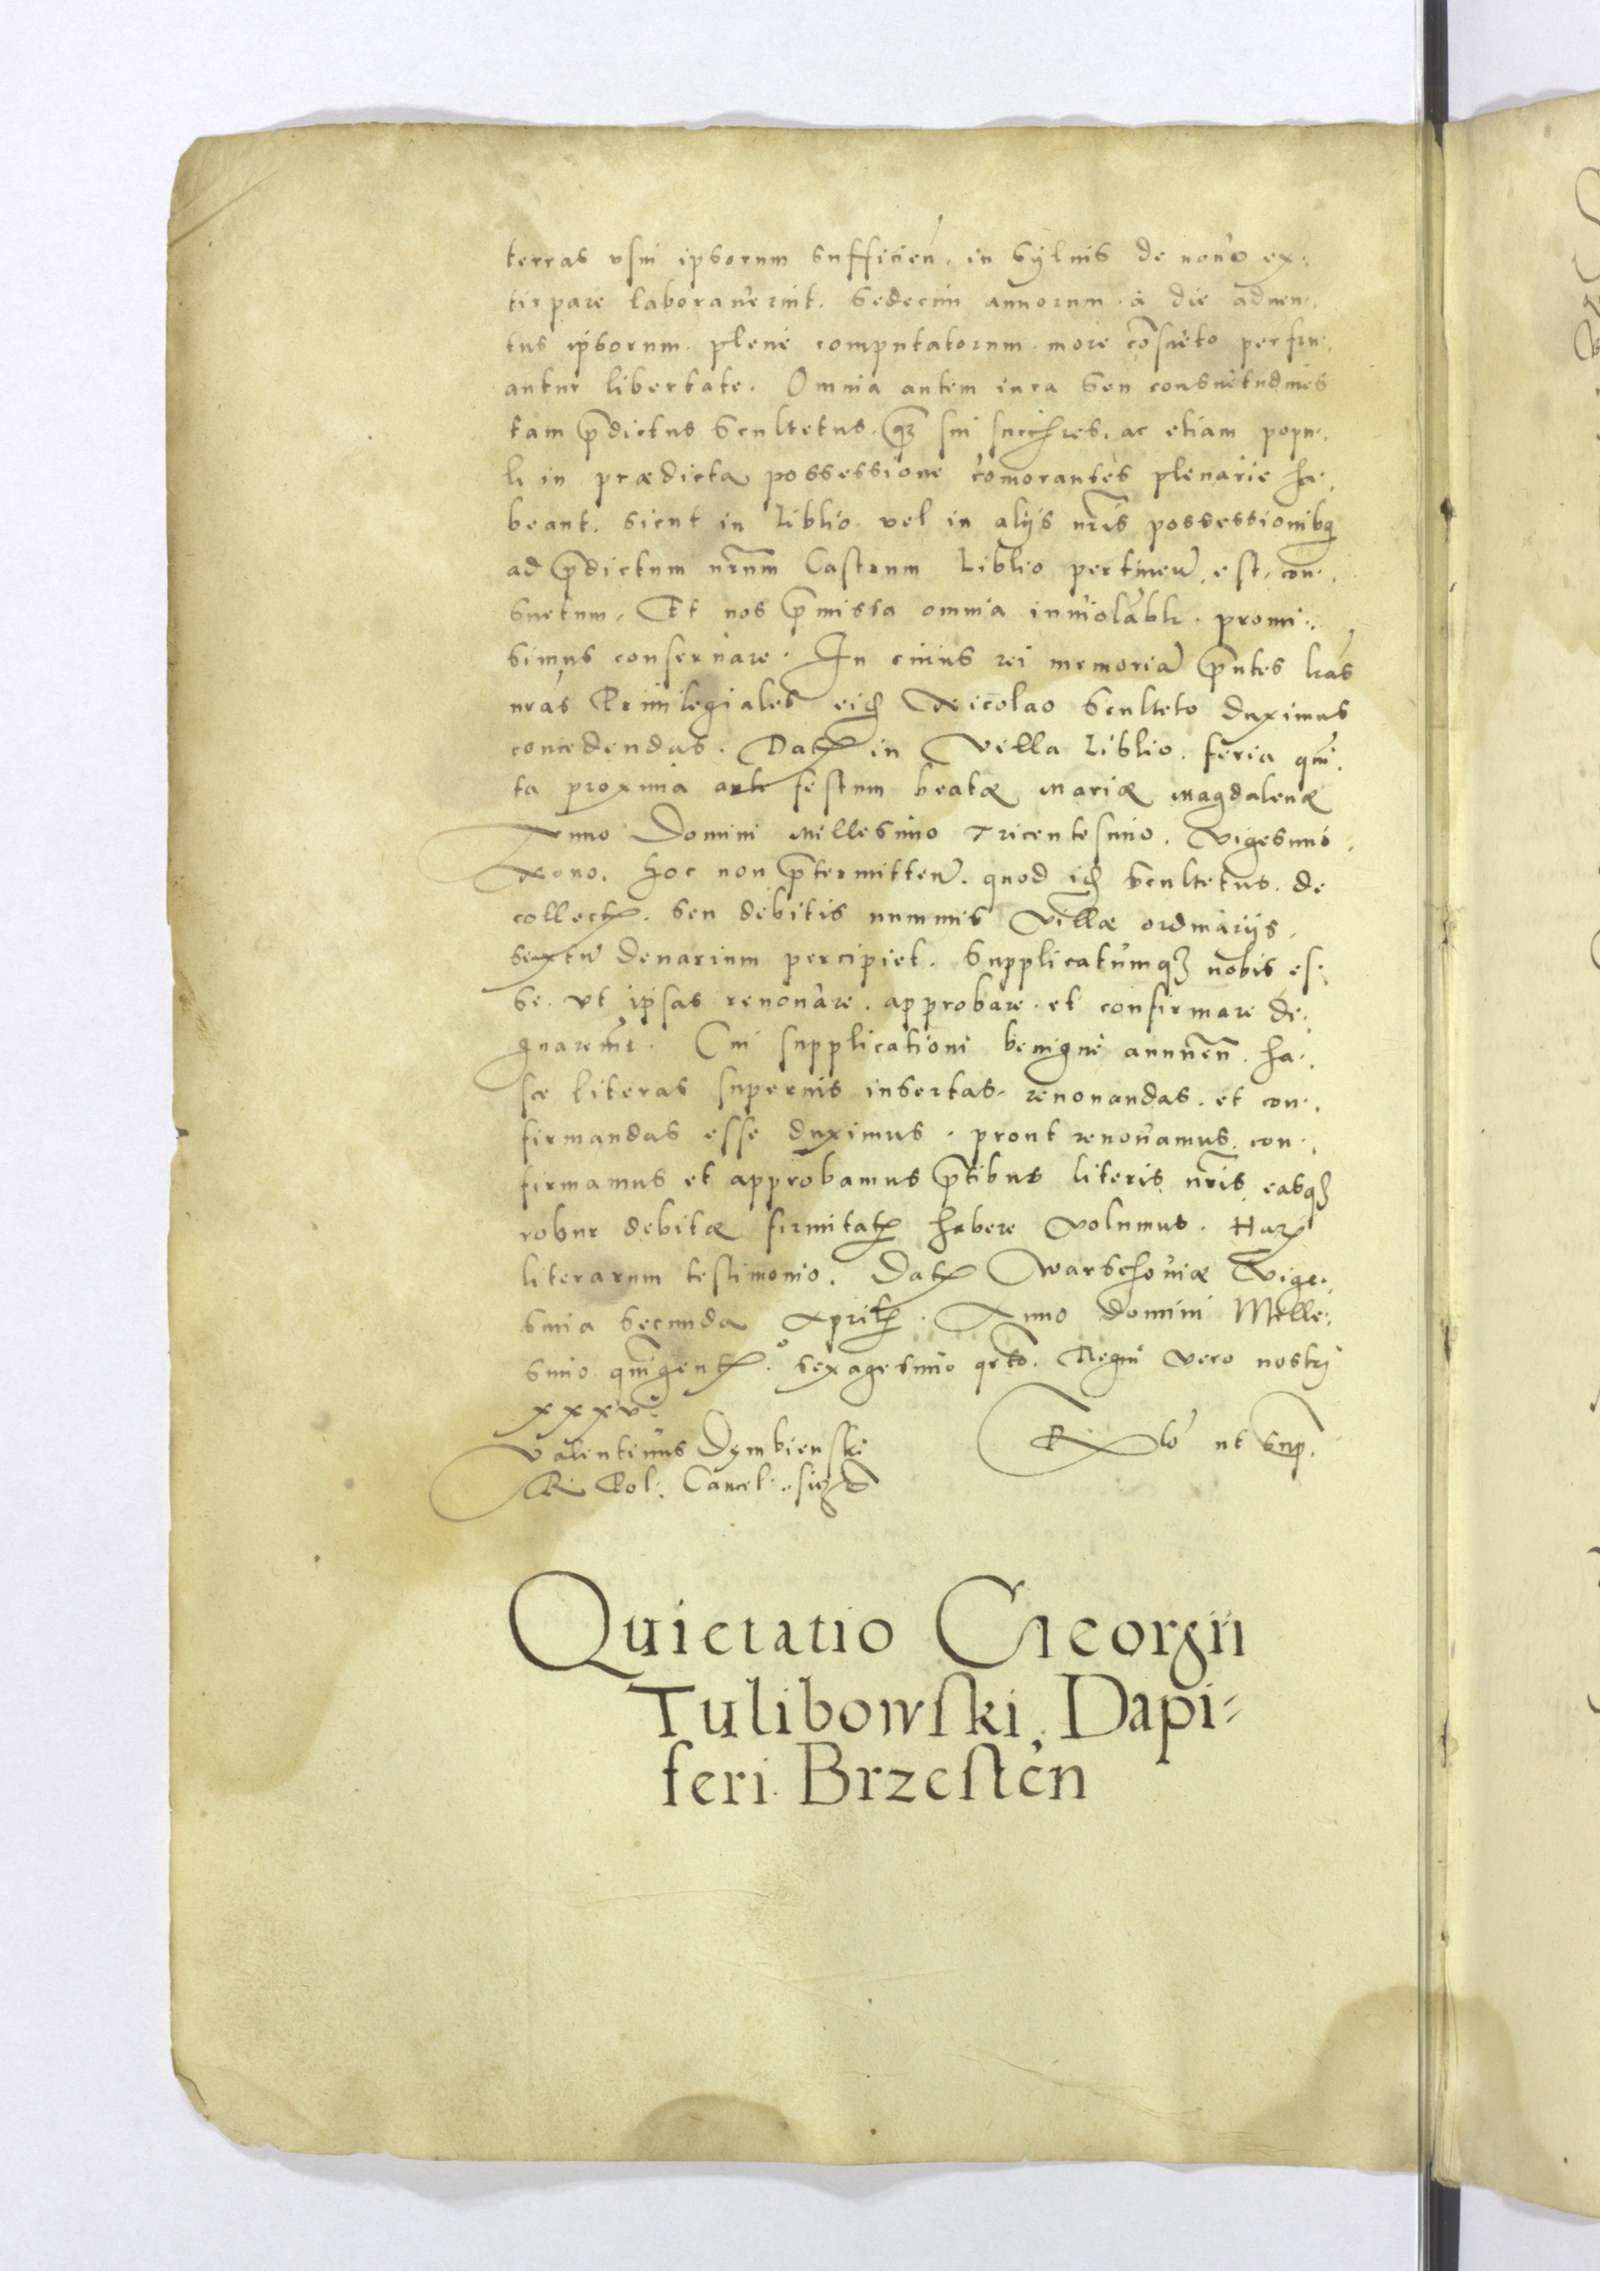 terras vsui ipsorum sufficien̄. in syluis de nouo ex:
tirpare laborauerint. Sedecim annorum à die aduen:
tus ipsorum plene computatorum more cōsueto perfru:
antur libertate. Omnia autem iura seu consuetudines
tam p̄dictus Scultetus. qȝ sui succ̄res. ac etiam popu:
li in prædicta possessione comorantes plenarie ha:
beant. sicut in Liblio vel in alijs nr̄is possessionibꝫ
ad p̄dictum nr̄um Castrum Liblio pertineñ. est con:
suetum. Et nos p̄missa omnia inuiolabłr. promi:
simus conseruare. In cuius rei memoriā p̄ntes l̄ras
nr̄as Priuilegiales eid̄ Nicolao Sculteto duximus
concedendas. Datꝫ in Villa Liblio. feria quin:
ta proxima ante festum beatæ Mariæ Magdalenæ
Anno Domini Millesimo Tricentesimo. Vigesimo
Nono. Hoc non p̄termitteñ. quod id̄ Scultetus. de
collectꝫ. seu debitis nummis Villæ ordinarijs.
sextū denarium percipiet. Supplicatumqȝ nobis es:
se. vt ipsas renouare. approbare et confirmare de:
gnarem̄r. Cui supplicationi benigne annueñ. ha:
sce literas superius insertas. renouandas. et con:
firmandas esse duximus. prout renouamus. con:
firmamus et approbamus p̄ntibus literis nr̄is easqȝ
robur debitæ firmitatꝫ habere volumus. Harꝫ
literarum testimonio. Datꝫ Warschouiæ Vige:
sima Secunda Aprilꝫ. Anno domini Mille:
simo quingentꝫᵒ. sexagesimo qrto. Regni vero nostri
xxxvᵒ.
Valentinus Dembienski ut sup̄.
R Pol: Cancel: sigt̄
Quietatio Georgii
Tulibowski Dapi=
feri Brzesten̄